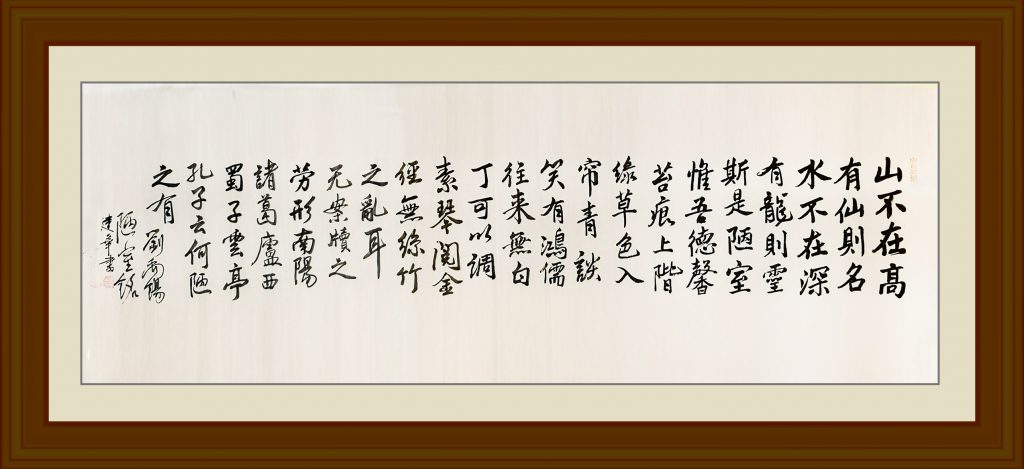 山不在高
有仙則名
水不在深
有龍則霊
斯是陋室
惟吾德馨
苔痕上階
緑草色入
帘青談
笑有鴻儒
往来無白
丁可以調
素琴阅金
經無絲竹
之亂耳
无案牘之
劳形南陽
諸葛廬西
蜀子雲亭
孔子云何陋
之有 劉禹錫
陋室銘
建章書